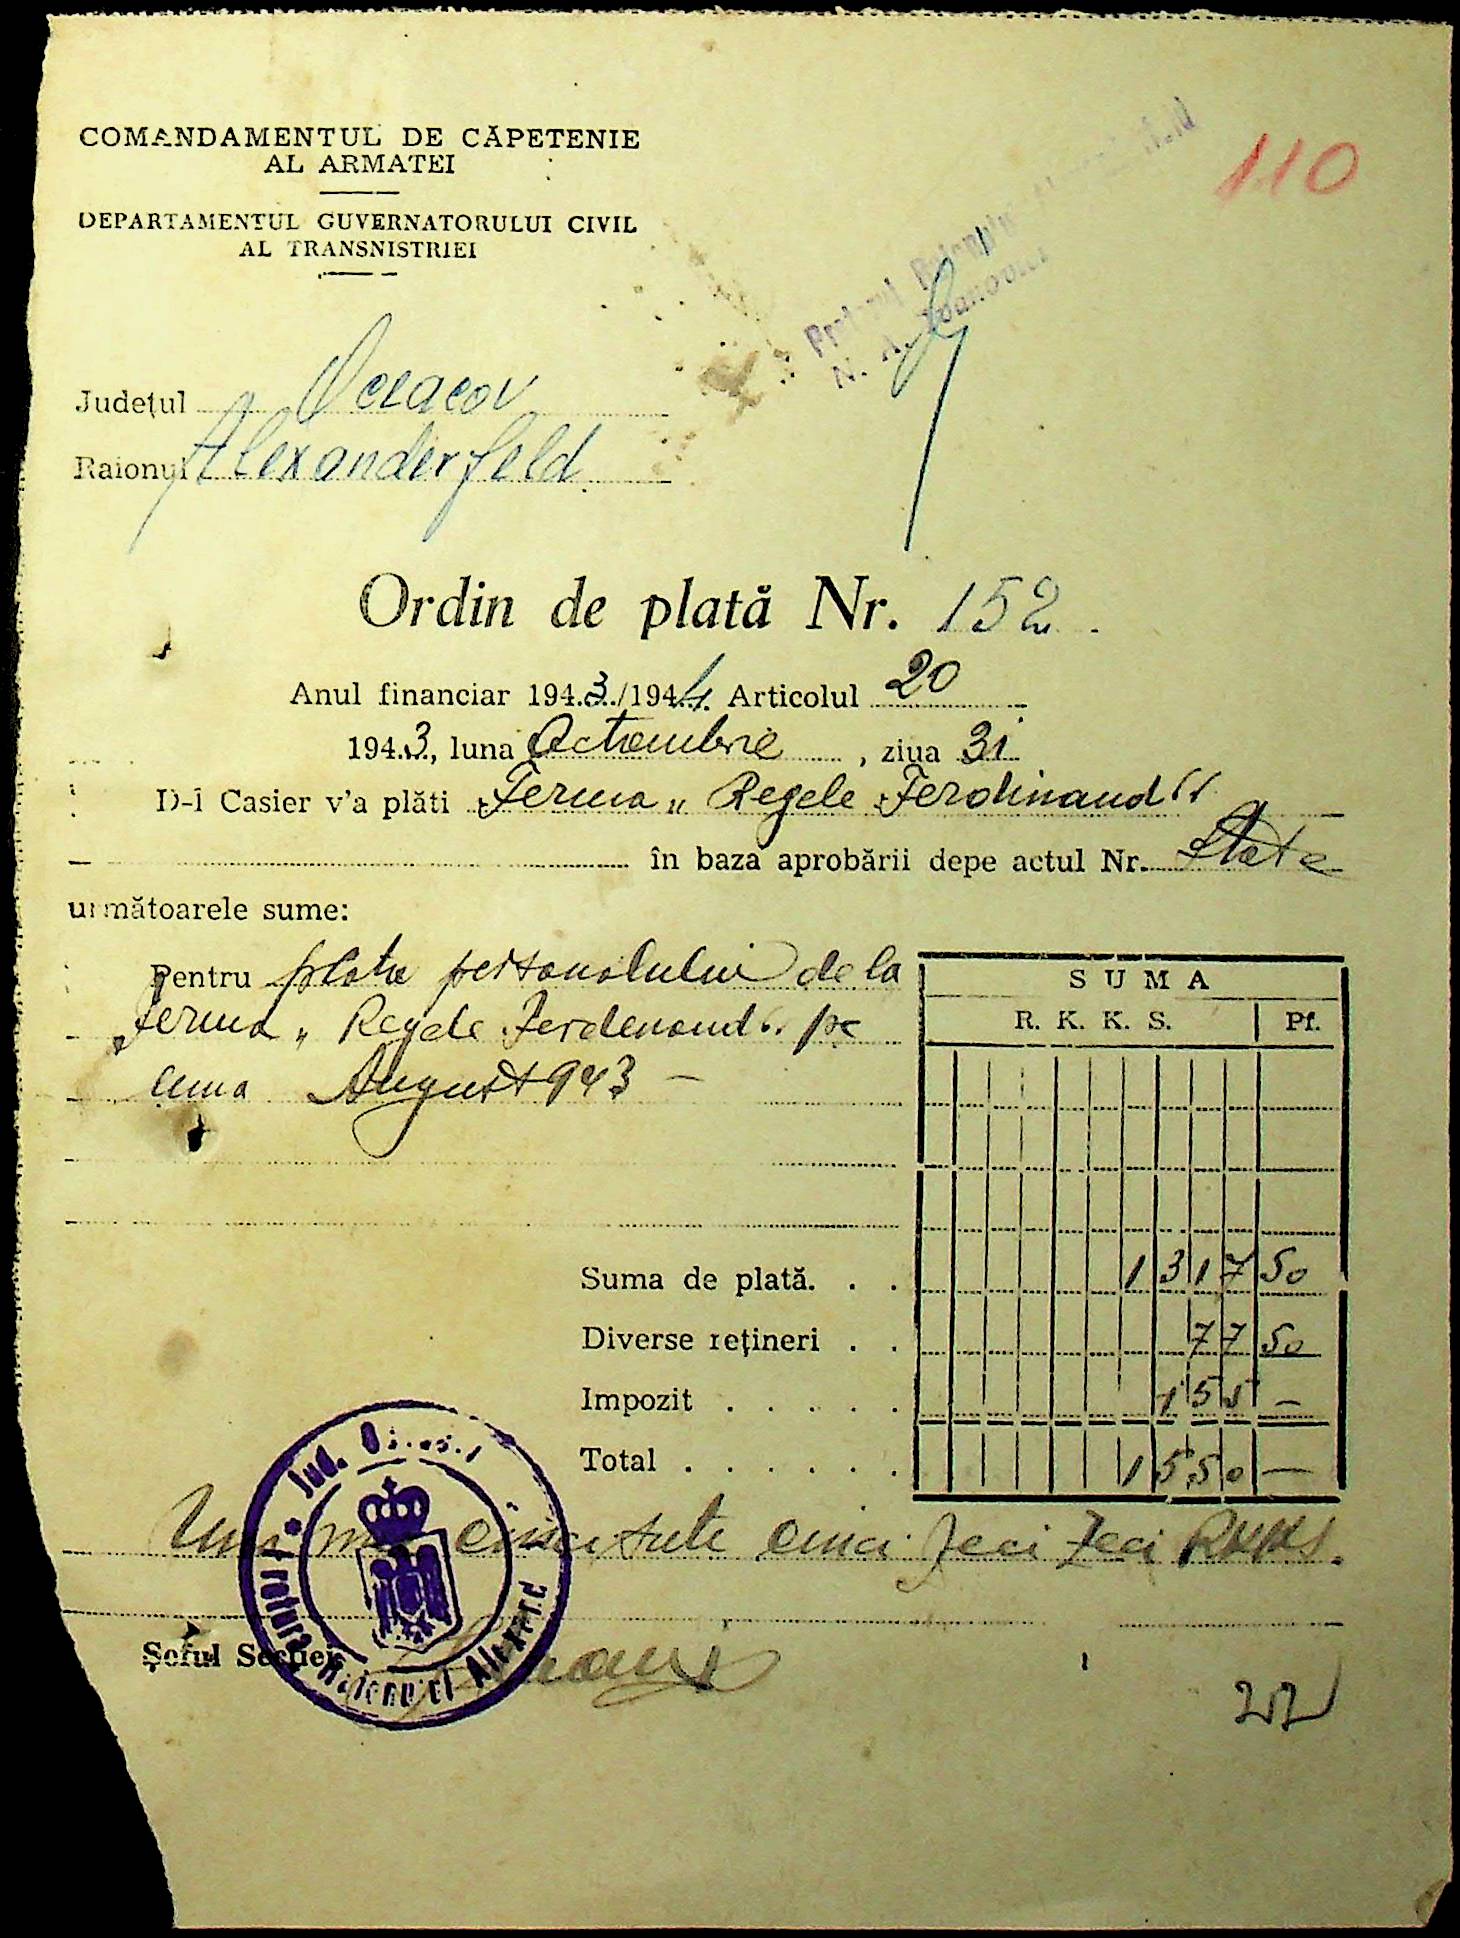 COMANDAMENTUL DE CĂPETENIE
AL ARMATEI
110
DEPARTAMENTUL GUVERNATORULUI CIVIL
AL TRANSNISTRIEI
N. A. Ioanovici
Județul Oceacov
Raionul Alexanderfeld
Ordin de plată Nr. 152
Anul financiar 1943/1944 Articolul 20
1943, luna Octombrie, ziua 31
D-l Casier v'a plăti Ferma „Regele Ferdinand"
în baza aprobării depe actul Nr. State
următoarele sume:
Pentru plata personalului de la
ferma „Regele Ferdenand" pe
luna August 943 —
SUMA
R. K. K. S. Pf.
Suma de plată. . . 1317 50
Diverse rețineri . . 77 50
Impozit . . . . . 155 —
Total . . . . . . 1550 —
Una mie cinci sute cinci zeci RKKS.
Șeful Secției
Jud.
Pretura Raionului
22